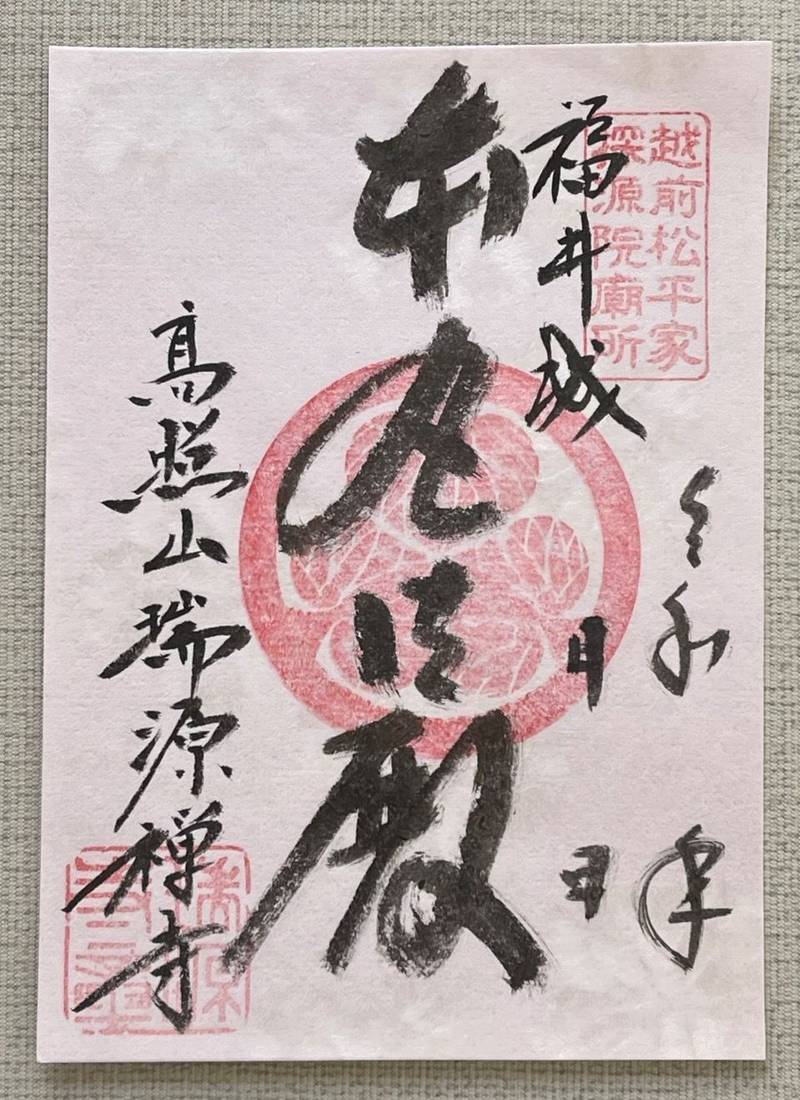 越前松平家
深源院廟所
福井城
令和 年
月 日
本丸御殿
高照山瑞源禅寺